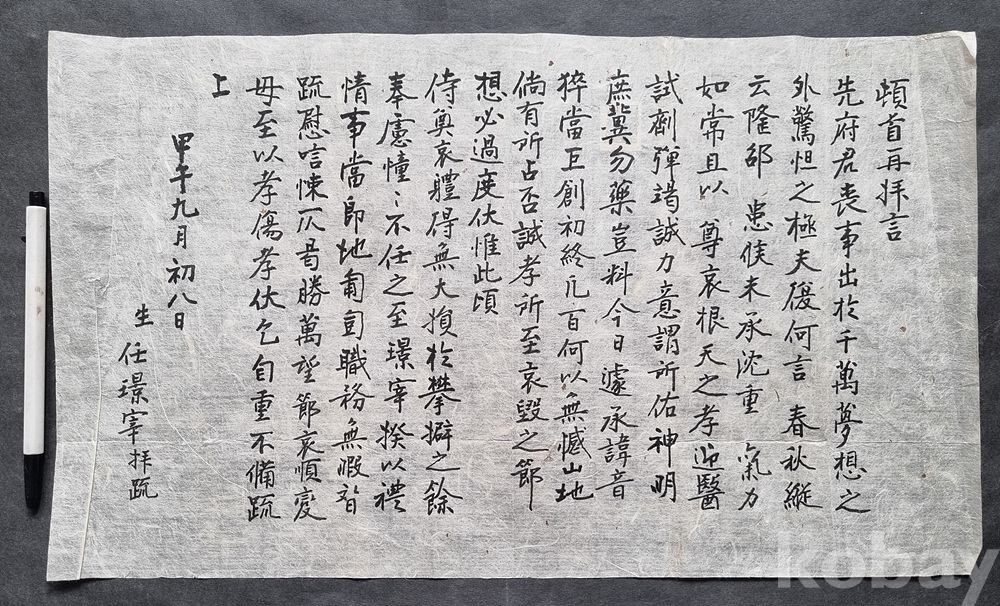 頓首再拜言
先府君喪事出於千萬夢想之
外驚怛之極夫復何言 春秋縱
云隆邵 患候未承沈重 氣力
如常且以 尊哀根天之孝迎醫
試劑殫竭誠力意謂所佑神明
庶冀勿藥豈料今日遽承諱音
猝當巨創初終凡百何以無憾山地
倘有所占否誠孝所至哀毀之節
想必過度伏惟此頃
侍奠哀軆得無大損於攀擗之餘
奉慮憧〻不任之至璟宰揆以禮
情事當卽地匍匐職務無暇替
疏慰唁悚仄曷勝萬望節哀順變
毋至以孝傷孝伏乞自重不備疏
上
甲午九月初八日
生 任璟宰拜疏
kobay